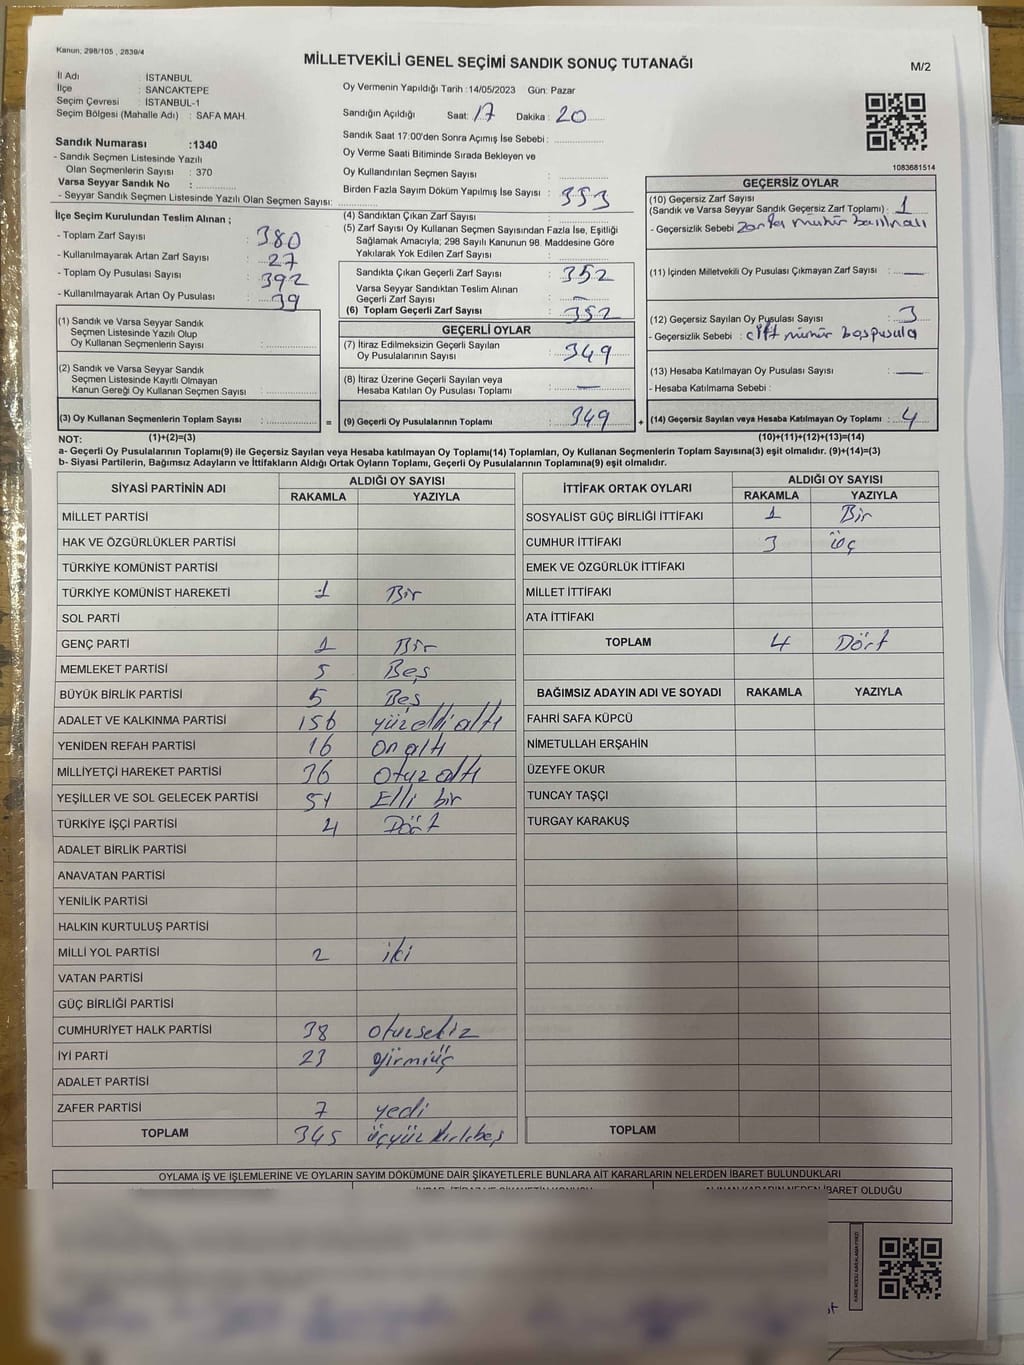 Kanun; 298/105 , 2839/4
MİLLETVEKİLİ GENEL SEÇİMİ SANDIK SONUÇ TUTANAĞI
M/2
İl Adı : İSTANBUL
İlçe : SANCAKTEPE
Seçim Çevresi : İSTANBUL-1
Seçim Bölgesi (Mahalle Adı) : SAFA MAH.
Sandık Numarası :1340
- Sandık Seçmen Listesinde Yazılı
Olan Seçmenlerin Sayısı : 370
Varsa Seyyar Sandık No :
- Seyyar Sandık Seçmen Listesinde Yazılı Olan Seçmen Sayısı:
Oy Vermenin Yapıldığı Tarih :14/05/2023 Gün: Pazar
Sandığın Açıldığı Saat: 17 Dakika : 20
Sandık Saat 17:00'den Sonra Açımış İse Sebebi :
Oy Verme Saati Bitiminde Sırada Bekleyen ve
Oy Kullandırılan Seçmen Sayısı :
Birden Fazla Sayım Döküm Yapılmış İse Sayısı : 353
1083681514
İlçe Seçim Kurulundan Teslim Alınan ;
- Toplam Zarf Sayısı : 380
- Kullanılmayarak Artan Zarf Sayısı : 27
- Toplam Oy Pusulası Sayısı : 392
- Kullanılmayarak Artan Oy Pusulası : 39
(1) Sandık ve Varsa Seyyar Sandık
Seçmen Listesinde Yazılı Olup
Oy Kullanan Seçmenlerin Sayısı :
(2) Sandık ve Varsa Seyyar Sandık
Seçmen Listesinde Kayıtlı Olmayan
Kanun Gereği Oy Kullanan Seçmen Sayısı :
(3) Oy Kullanan Seçmenlerin Toplam Sayısı : =
(4) Sandıktan Çıkan Zarf Sayısı :
(5) Zarf Sayısı Oy Kullanan Seçmen Sayısından Fazla İse, Eşitliği
Sağlamak Amacıyla; 298 Sayılı Kanunun 98. Maddesine Göre
Yakılarak Yok Edilen Zarf Sayısı :
Sandıkta Çıkan Geçerli Zarf Sayısı : 352
Varsa Seyyar Sandıktan Teslim Alınan
Geçerli Zarf Sayısı : —
(6) Toplam Geçerli Zarf Sayısı : 352
GEÇERLİ OYLAR
(7) İtiraz Edilmeksizin Geçerli Sayılan
Oy Pusulalarının Sayısı : 349
(8) İtiraz Üzerine Geçerli Sayılan veya
Hesaba Katılan Oy Pusulası Toplamı : —
(9) Geçerli Oy Pusulalarının Toplamı : 349 +
GEÇERSİZ OYLAR
(10) Geçersiz Zarf Sayısı
(Sandık ve Varsa Seyyar Sandık Geçersiz Zarf Toplamı) : 1
- Geçersizlik Sebebi mühür
(11) İçinden Milletvekili Oy Pusulası Çıkmayan Zarf Sayısı : —
(12) Geçersiz Sayılan Oy Pusulası Sayısı : 3
- Geçersizlik Sebebi : çift mühür
(13) Hesaba Katılmayan Oy Pusulası Sayısı : —
- Hesaba Katılmama Sebebi :
(14) Geçersiz Sayılan veya Hesaba Katılmayan Oy Toplamı : 4
NOT: (1)+(2)=(3) (10)+(11)+(12)+(13)=(14)
a- Geçerli Oy Pusulalarının Toplamı(9) ile Geçersiz Sayılan veya Hesaba katılmayan Oy Toplamı(14) Toplamları, Oy Kullanan Seçmenlerin Toplam Sayısına(3) eşit olmalıdır. (9)+(14)=(3)
b- Siyasi Partilerin, Bağımsız Adayların ve İttifakların Aldığı Ortak Oyların Toplamı, Geçerli Oy Pusulalarının Toplamına(9) eşit olmalıdır.
SİYASİ PARTİNİN ADI ALDIĞI OY SAYISI
RAKAMLA YAZIYLA
MİLLET PARTİSİ
HAK VE ÖZGÜRLÜKLER PARTİSİ
TÜRKİYE KOMÜNİST PARTİSİ
TÜRKİYE KOMÜNİST HAREKETİ 1 Bir
SOL PARTİ
GENÇ PARTİ 1 Bir
MEMLEKET PARTİSİ 5 Beş
BÜYÜK BİRLİK PARTİSİ 5 Beş
ADALET VE KALKINMA PARTİSİ 156 yüzelli altı
YENİDEN REFAH PARTİSİ 16 on altı
MİLLİYETÇİ HAREKET PARTİSİ 36 otuz altı
YEŞİLLER VE SOL GELECEK PARTİSİ 51 Elli bir
TÜRKİYE İŞÇİ PARTİSİ 4 Dört
ADALET BİRLİK PARTİSİ
ANAVATAN PARTİSİ
YENİLİK PARTİSİ
HALKIN KURTULUŞ PARTİSİ
MİLLİ YOL PARTİSİ 2 iki
VATAN PARTİSİ
GÜÇ BİRLİĞİ PARTİSİ
CUMHURİYET HALK PARTİSİ 38 otuzsekiz
İYİ PARTİ 23 yirmiüç
ADALET PARTİSİ
ZAFER PARTİSİ 7 yedi
TOPLAM 345 üçyüz kırkbeş
İTTİFAK ORTAK OYLARI ALDIĞI OY SAYISI
RAKAMLA YAZIYLA
SOSYALİST GÜÇ BİRLİĞİ İTTİFAKI 1 Bir
CUMHUR İTTİFAKI 3 üç
EMEK VE ÖZGÜRLÜK İTTİFAKI
MİLLET İTTİFAKI
ATA İTTİFAKI
TOPLAM 4 Dört
BAĞIMSIZ ADAYIN ADI VE SOYADI RAKAMLA YAZIYLA
FAHRİ SAFA KÜPCÜ
NİMETULLAH ERŞAHİN
ÜZEYFE OKUR
TUNCAY TAŞÇI
TURGAY KARAKUŞ
TOPLAM
OYLAMA İŞ VE İŞLEMLERİNE VE OYLARIN SAYIM DÖKÜMÜNE DAİR ŞİKAYETLERLE BUNLARA AİT KARARLARIN NELERDEN İBARET BULUNDUKLARI
ALINAN KARARIN NEDEN İBARET OLDUĞU